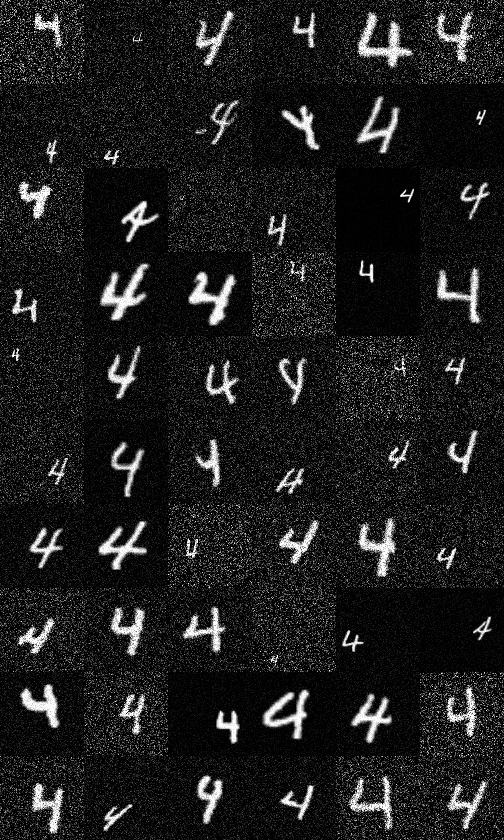 4 4 4 4 4 4
4 4 4 4 4 4
4 4 4 4 4
4 4 4 4 4 4
4 4 4 4 4 4
4 4 4 4 4 4
4 4 4 4 4 4
4 4 4 4 4 4
4 4 4 4 4 4
4 4 4 4 4 4